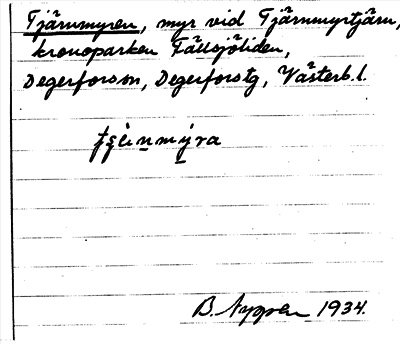 Tjärnmyren, myr vid Tjärnmyrtjärn,
kronoparken Fällsjöliden,
Degerforssn, Degerforstg, Västerb.l.
B. Nygren 1934.